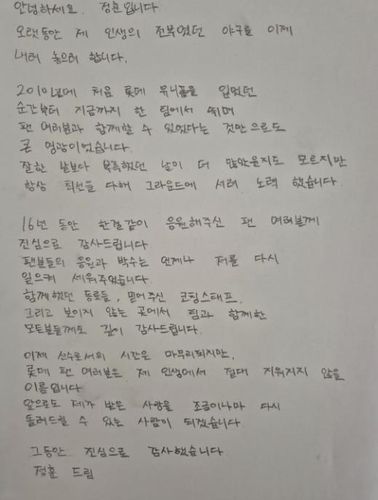 안녕하세요. 정훈입니다
오랫동안 제 인생의 전부였던 야구를 이제
내려 놓으려 합니다.
2010년에 처음 롯데 유니폼을 입었던
순간부터 지금까지 한 팀에서 뛰며
팬 여러분과 함께할 수 있었다는 것만으로도
큰 영광이었습니다.
잘한 날보다 부족했던 날이 더 많았을지도 모르지만
항상 최선을 다해 그라운드에 서려 노력 했습니다.
16년 동안 한결같이 응원해주신 팬 여러분께
진심으로 감사드립니다
팬분들의 응원과 박수는 언제나 저를 다시
일으켜 세워주었습니다
함께했던 동료들, 믿어주신 코칭스태프.
그리고 보이지 않는 곳에서 팀과 함께한
모든분들께도 깊이 감사드립니다.
이제 선수로서의 시간은 마무리되지만,
롯데 팬 여러분은 제 인생에서 절대 지워지지 않을
이름입니다
앞으로도 제가 받은 사랑을 조금이나마 다시
돌려드릴 수 있는 사람이 되겠습니다
그동안 진심으로 감사했습니다
정훈 드림